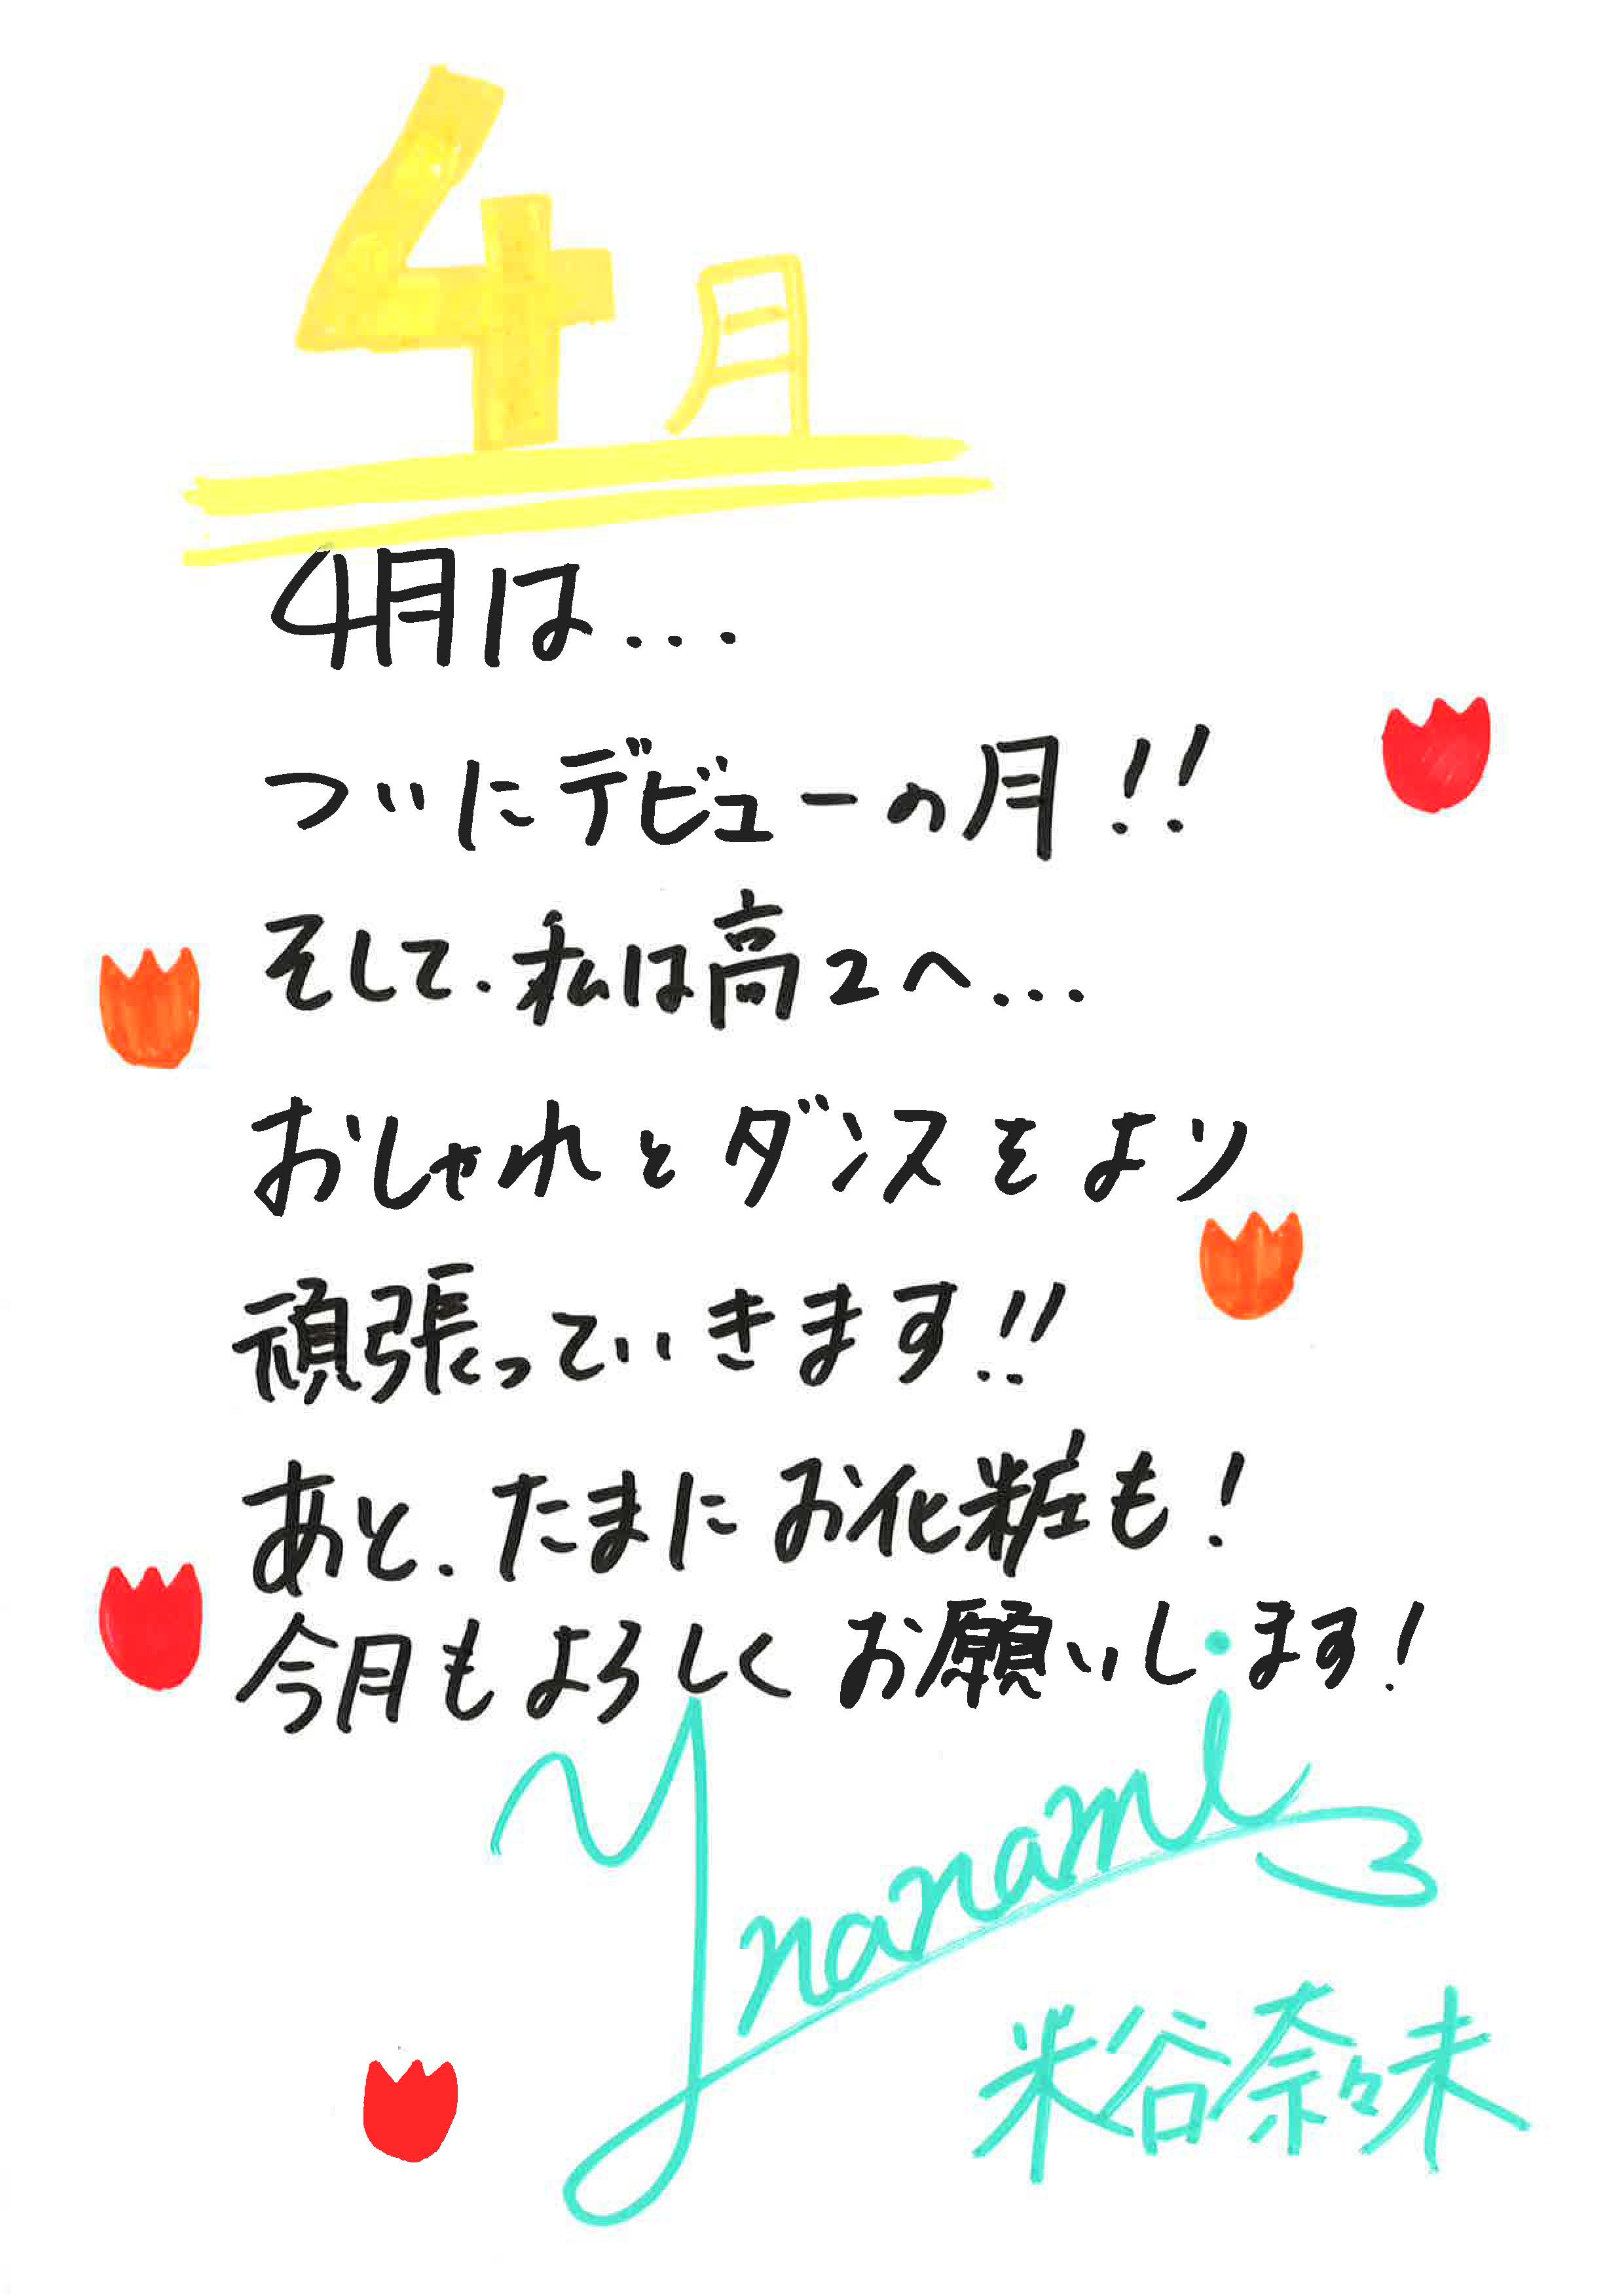 4月
4月は...
ついにデビューの月!!
そして、私は高2へ...
おしゃれとダンスをより
頑張っていきます!!
あと、たまにお化粧も!
今月もよろしくお願いします!
Ynanami
米谷奈々未